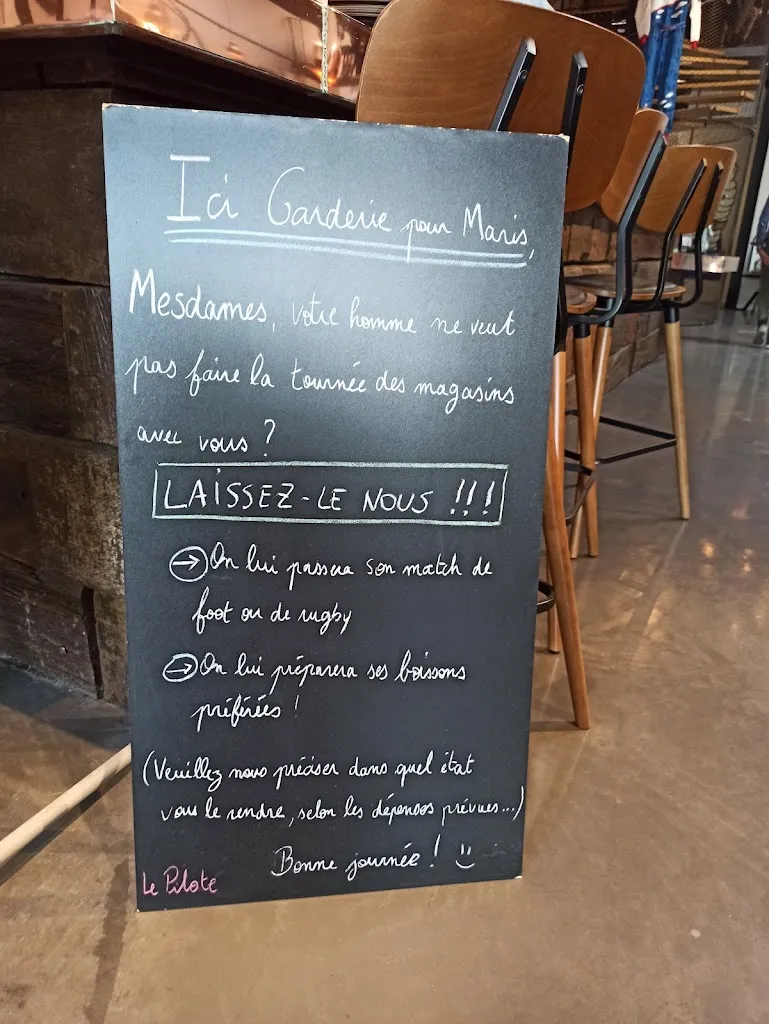 Ici Garderie pour Maris,
Mesdames, votre homme ne veut
pas faire la tournée des magasins
avec vous ?
LAISSEZ-LE NOUS !!!
→ On lui passera son match de
foot ou de rugby
→ On lui préparera ses boissons
préférées !
(Veuillez nous préciser dans quel état
vous le rendre, selon les dépenses prévues...)
Bonne journée ! :)
Le Pilote